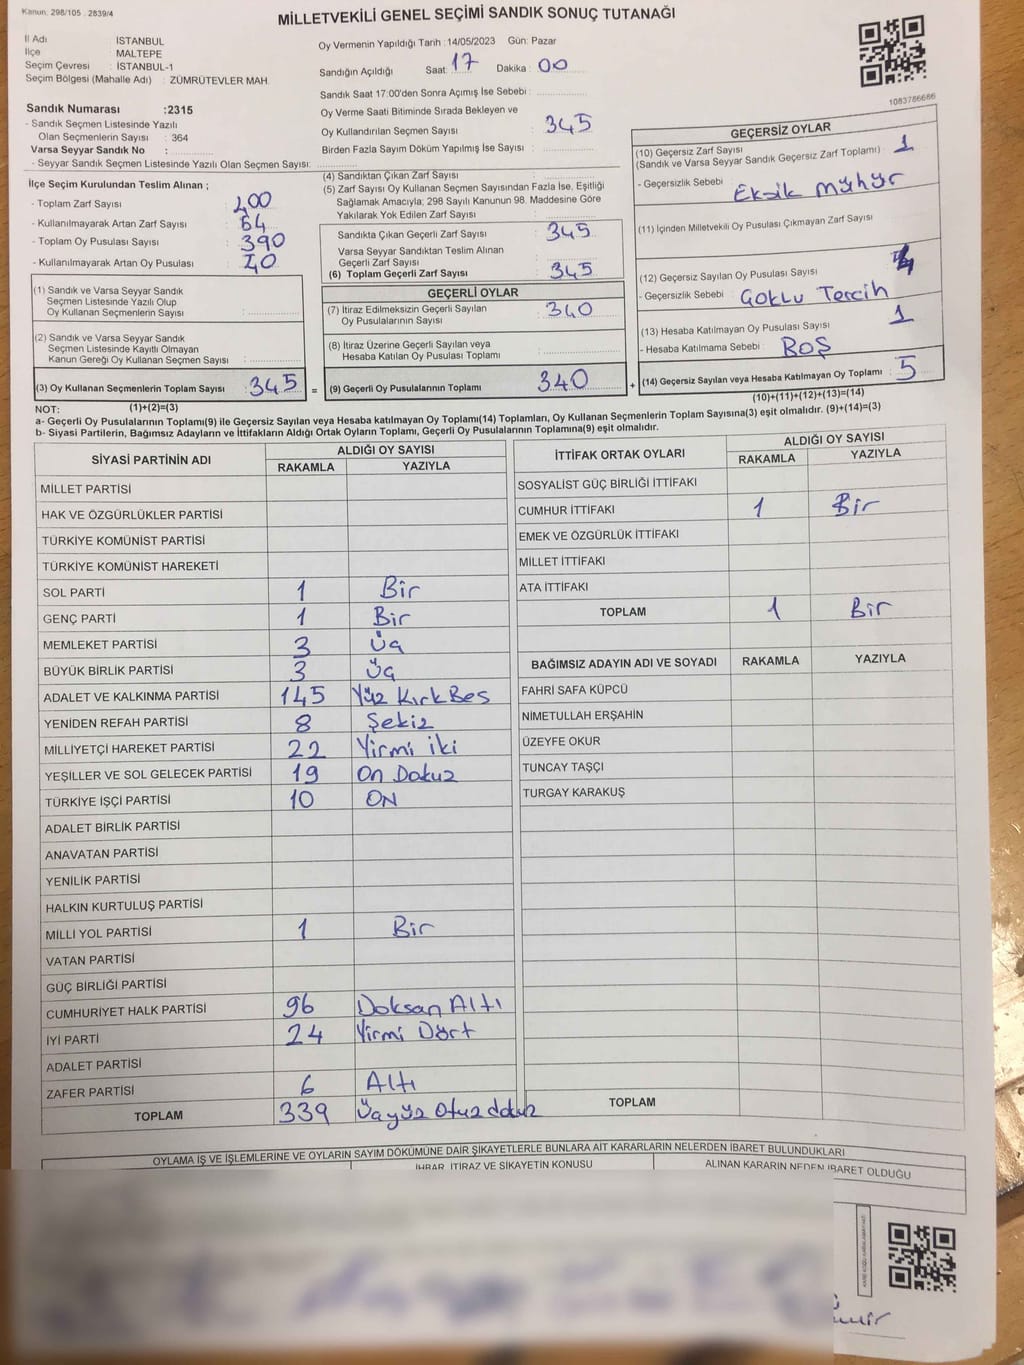 Kanun: 298/105 : 2839/4
MİLLETVEKİLİ GENEL SEÇİMİ SANDIK SONUÇ TUTANAĞI
İl Adı İSTANBUL
İlçe MALTEPE
Seçim Çevresi : İSTANBUL-1
Seçim Bölgesi (Mahalle Adı) : ZÜMRÜTEVLER MAH.
Sandık Numarası :2315
- Sandık Seçmen Listesinde Yazılı
Olan Seçmenlerin Sayısı : 364
Varsa Seyyar Sandık No :
- Seyyar Sandık Seçmen Listesinde Yazılı Olan Seçmen Sayısı:
Oy Vermenin Yapıldığı Tarih :14/05/2023 Gün: Pazar
Sandığın Açıldığı Saat: 17 Dakika : 00
Sandık Saat 17:00'den Sonra Açımış İse Sebebi :
Oy Verme Saati Bitiminde Sırada Bekleyen ve
Oy Kullandırılan Seçmen Sayısı : 345
Birden Fazla Sayım Döküm Yapılmış İse Sayısı :
1083786686
İlçe Seçim Kurulundan Teslim Alınan ;
- Toplam Zarf Sayısı : 400
- Kullanılmayarak Artan Zarf Sayısı : 64
- Toplam Oy Pusulası Sayısı : 390
- Kullanılmayarak Artan Oy Pusulası : 40
(1) Sandık ve Varsa Seyyar Sandık
Seçmen Listesinde Yazılı Olup
Oy Kullanan Seçmenlerin Sayısı :
(2) Sandık ve Varsa Seyyar Sandık
Seçmen Listesinde Kayıtlı Olmayan
Kanun Gereği Oy Kullanan Seçmen Sayısı :
(3) Oy Kullanan Seçmenlerin Toplam Sayısı : 345 =
(1)+(2)=(3)
(4) Sandıktan Çıkan Zarf Sayısı :
(5) Zarf Sayısı Oy Kullanan Seçmen Sayısından Fazla İse, Eşitliği
Sağlamak Amacıyla; 298 Sayılı Kanunun 98. Maddesine Göre
Yakılarak Yok Edilen Zarf Sayısı :
Sandıkta Çıkan Geçerli Zarf Sayısı : 345
Varsa Seyyar Sandıktan Teslim Alınan
Geçerli Zarf Sayısı :
(6) Toplam Geçerli Zarf Sayısı : 345
GEÇERLİ OYLAR
(7) İtiraz Edilmeksizin Geçerli Sayılan
Oy Pusulalarının Sayısı : 340
(8) İtiraz Üzerine Geçerli Sayılan veya
Hesaba Katılan Oy Pusulası Toplamı :
(9) Geçerli Oy Pusulalarının Toplamı : 340 +
GEÇERSİZ OYLAR
(10) Geçersiz Zarf Sayısı
(Sandık ve Varsa Seyyar Sandık Geçersiz Zarf Toplamı) : 1
- Geçersizlik Sebebi : Eksik Mühür
(11) İçinden Milletvekili Oy Pusulası Çıkmayan Zarf Sayısı
(12) Geçersiz Sayılan Oy Pusulası Sayısı :
- Geçersizlik Sebebi : Çoklu Tercih
(13) Hesaba Katılmayan Oy Pusulası Sayısı : 1
- Hesaba Katılmama Sebebi : Boş
(14) Geçersiz Sayılan veya Hesaba Katılmayan Oy Toplamı : 5
(10)+(11)+(12)+(13)=(14)
NOT:
a- Geçerli Oy Pusulalarının Toplamı(9) ile Geçersiz Sayılan veya Hesaba katılmayan Oy Toplamı(14) Toplamları, Oy Kullanan Seçmenlerin Toplam Sayısına(3) eşit olmalıdır. (9)+(14)=(3)
b- Siyasi Partilerin, Bağımsız Adayların ve İttifakların Aldığı Ortak Oyların Toplamı, Geçerli Oy Pusulalarının Toplamına(9) eşit olmalıdır.
SİYASİ PARTİNİN ADI ALDIĞI OY SAYISI
RAKAMLA YAZIYLA
MİLLET PARTİSİ
HAK VE ÖZGÜRLÜKLER PARTİSİ
TÜRKİYE KOMÜNİST PARTİSİ
TÜRKİYE KOMÜNİST HAREKETİ
SOL PARTİ 1 Bir
GENÇ PARTİ 1 Bir
MEMLEKET PARTİSİ 3 Üç
BÜYÜK BİRLİK PARTİSİ 3 Üç
ADALET VE KALKINMA PARTİSİ 145 Yüz Kırk Bes
YENİDEN REFAH PARTİSİ 8 Şekiz
MİLLİYETÇİ HAREKET PARTİSİ 22 Yirmi iki
YEŞİLLER VE SOL GELECEK PARTİSİ 19 On Dokuz
TÜRKİYE İŞÇİ PARTİSİ 10 ON
ADALET BİRLİK PARTİSİ
ANAVATAN PARTİSİ
YENİLİK PARTİSİ
HALKIN KURTULUŞ PARTİSİ
MİLLİ YOL PARTİSİ 1 Bir
VATAN PARTİSİ
GÜÇ BİRLİĞİ PARTİSİ
CUMHURİYET HALK PARTİSİ 96 Doksan Altı
İYİ PARTİ 24 Yirmi Dört
ADALET PARTİSİ
ZAFER PARTİSİ 6 Altı
TOPLAM 339 Üçyüz Otuz dokuz
İTTİFAK ORTAK OYLARI ALDIĞI OY SAYISI
RAKAMLA YAZIYLA
SOSYALİST GÜÇ BİRLİĞİ İTTİFAKI
CUMHUR İTTİFAKI 1 Bir
EMEK VE ÖZGÜRLÜK İTTİFAKI
MİLLET İTTİFAKI
ATA İTTİFAKI
TOPLAM 1 Bir
BAĞIMSIZ ADAYIN ADI VE SOYADI RAKAMLA YAZIYLA
FAHRİ SAFA KÜPCÜ
NİMETULLAH ERŞAHİN
ÜZEYFE OKUR
TUNCAY TAŞÇI
TURGAY KARAKUŞ
TOPLAM
OYLAMA İŞ VE İŞLEMLERİNE VE OYLARIN SAYIM DÖKÜMÜNE DAİR ŞİKAYETLERLE BUNLARA AİT KARARLARIN NELERDEN İBARET BULUNDUKLARI
İHBAR, İTİRAZ VE ŞİKAYETİN KONUSU ALINAN KARARIN NEDEN İBARET OLDUĞU